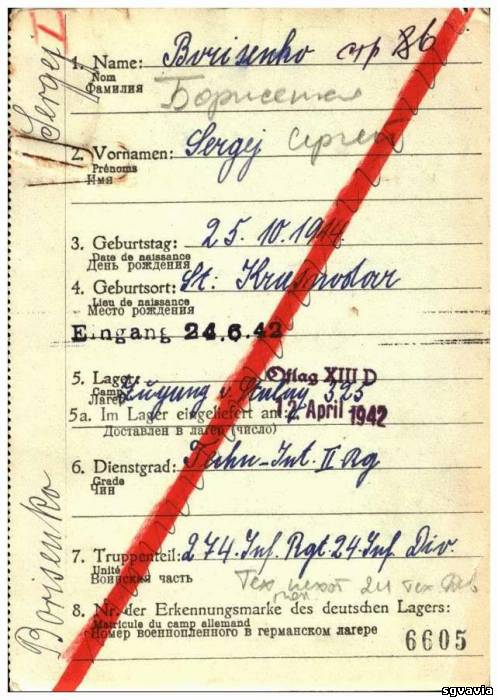 Borisenko
Sergej
1. Name: Borisenko стр 86
Nom
Фамилия
Борисенко
2. Vornamen: Sergej Сергей
Prénoms
Имя
3. Geburtstag: 25. 10. 1914
Date de naissance
День рождения
4. Geburtsort: St: Krasnodar
Lieu de naissance
Место рождения
Eingang 24.6.42
Oflag XIII D
5. Lager: Zugang v. Stalag 325
Camp
Лагерь
5a. Im Lager eingeliefert an: 12. April 1942
Доставлен в лагер (число)
6. Dienstgrad: Techn-Int. II Rg
Grade
Чин
7. Truppenteil: 274. Inf. Rgt. 24. Inf. Div.
Unité
Воинская часть
24
8. Nr. der Erkennungsmarke des deutschen Lagers:
Matricule du camp allemand
Номер военнопленного в германском лагере
6605
sgvavia